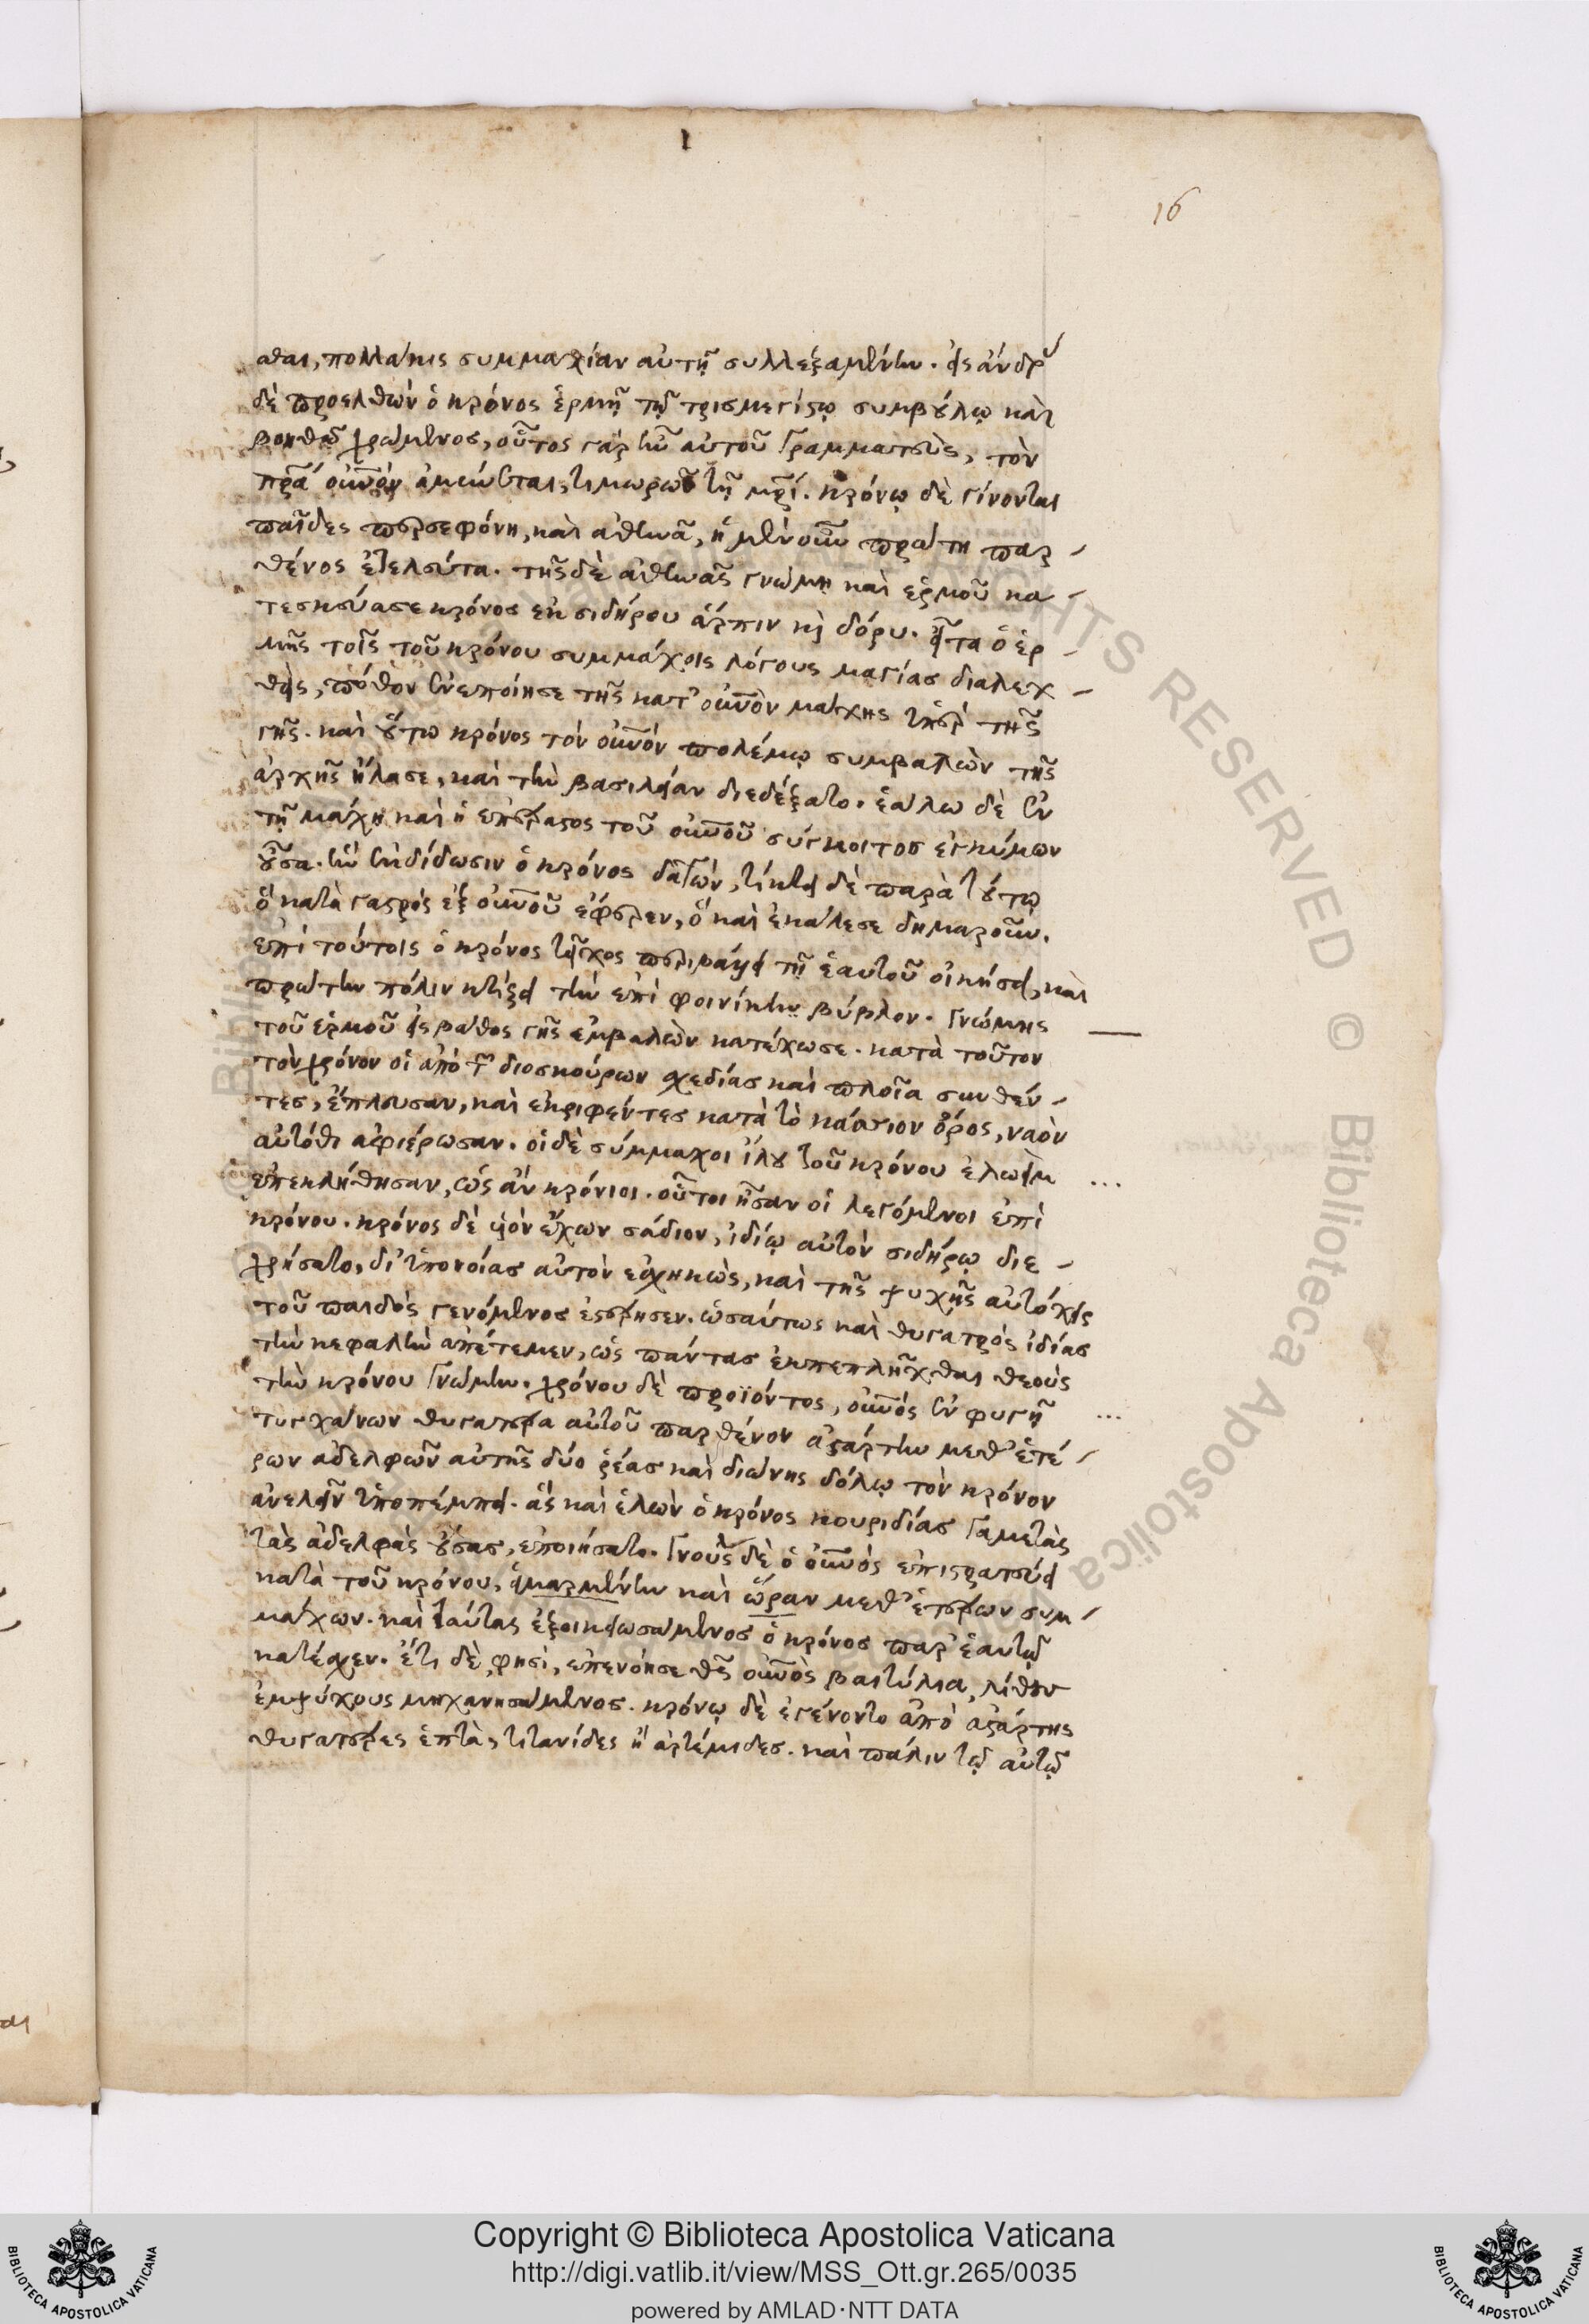 16
σθαι, πολλάκις συμμαχίαν αὐτῇ συλλεξαμένην. εἰς ἄνδρ
δὲ προελθὼν ὁ κρόνος ἑρμῇ τῷ τρισμεγίστῳ συμβούλῳ καὶ
βοηθῷ χρώμενος, οὗτος γὰρ ἦν αὐτοῦ γραμματεὺς, τὸν
πρα οὐνὸν ἀμείνεται, τιμωρῶν τῇ μρι. κρόνῳ δὲ γίνονται
παῖδες περσεφόνη, καὶ ἀθηνᾶ, ἡ μὲν οὖν πρώτη παρ-
θένος ἐτελεύτα. τῆς δὲ ἀθηνᾶς γνώμῃ καὶ ἑρμοῦ κα-
τεσκεύασε κρόνος ἐκ σιδήρου ἅρπιν καὶ δόρυ. εἶτα ὁ ἑρ-
μῆς τοῖς τοῦ κρόνου συμμάχοις λόγους μαγίας διαλεχ-
θεὶς, πόθον ἐνεποίησε τῆς κατ' οὐνὸν μάχης ὑπὲρ τῆς
γῆς. καὶ οὕτω κρόνος τὸν οὐνὸν πολέμῳ συμβαλὼν τῆς
ἀρχῆς ἤλασε, καὶ τὴν βασιλείαν διεδέξατο. ἑάλω δὲ ἐν
τῇ μάχῃ καὶ ἡ ἐπέραστος τοῦ οὐνοῦ σύγκοιτος ἐγκύμων
οὖσα. ἣν ἐκδίδωσιν ὁ κρόνος δαγών, τίκτει δὲ παρὰ τούτῳ
ὃ κατὰ γαστρὸς ἐξ οὐνοῦ ἔφερεν, ὃ καὶ ἐκάλεσε δημαροῦν.
ἐπὶ τούτοις ὁ κρόνος τεῖχος περιβάλλει τῇ ἑαυτοῦ οἰκήσει, καὶ
πρώτην πόλιν κτίζει τὴν ἐπὶ φοινίκην βύβλον. γνώμης
τοῦ ἑρμοῦ εἰς βάθος γῆς ἐμβαλὼν κατέχωσε. κατὰ τοῦτον
τὸν χρόνον οἱ ἀπὸ τῶν διοσκούρων σχεδίας καὶ πλοῖα συνθέν-
τες, ἔπλευσαν, καὶ ἐκριφέντες κατὰ τὸ κάσσιον ὄρος, ναὸν
αὐτόθι ἀφιέρωσαν. οἱ δὲ σύμμαχοι ἴλου τοῦ κρόνου ἐλωεὶμ
ἐπεκλήθησαν, ὡς ἂν κρόνιοι. οὗτοι ἦσαν οἱ λεγόμενοι ἐπὶ
κρόνου. κρόνος δὲ υἱὸν ἔχων σάδιον, ἰδίῳ αὐτὸν σιδήρῳ διε-
χρήσατο, δι' ὑπονοίας αὐτὸν ἐσχηκὼς, καὶ τῆς ψυχῆς αὐτόχειρ
τοῦ παιδὸς γενόμενος ἐστέρησεν. ὡσαύτως καὶ θυγατρὸς ἰδίας
τὴν κεφαλὴν ἀπέτεμεν, ὡς πάντας ἐκπεπλῆχθαι θεοὺς
τὴν κρόνου γνώμην. χρόνου δὲ προϊόντος, οὐνὸς ἐν φυγῇ
τυγχάνων θυγατέρα αὐτοῦ παρθένον ἀστάρτην μεθ' ἑτέ-
ρων ἀδελφῶν αὐτῆς δύο ῥέας καὶ διώνης δόλῳ τὸν κρόνον
ἀνελεῖν ὑποπέμπει. ἃς καὶ ἑλὼν ὁ κρόνος κουριδίας γαμετὰς
τὰς ἀδελφὰς οὔσας, ἐποιήσατο. γνοὺς δὲ ὁ οὐνὸς ἐπιστρατεύει
κατὰ τοῦ κρόνου, εἱμαρμένην καὶ ὥραν μεθ' ἑτέρων συμ-
μάχων. καὶ ταύτας ἐξοικειωσάμενος ὁ κρόνος παρ' ἑαυτῷ
κατέσχεν. ἔτι δὲ φησὶ, ἐπενόησε θς οὐνὸς βαιτύλια, λίθους
ἐμψύχους μηχανησάμενος. κρόνῳ δὲ ἐγένοντο ἀπὸ ἀστάρτης
θυγατέρες ἑπτὰ, τιτανίδες ἢ ἀρτέμιδες. καὶ πάλιν τῷ αὐτῷ
RIGHTS RESERVED © Biblioteca Apostolica
Copyright © Biblioteca Apostolica Vaticana
http://digi.vatlib.it/view/MSS_Ott.gr.265/0035
powered by AMLAD·NTT DATA
BIBLIOTECA APOSTOLICA VATICANA
BIBLIOTECA APOSTOLICA VATICANA